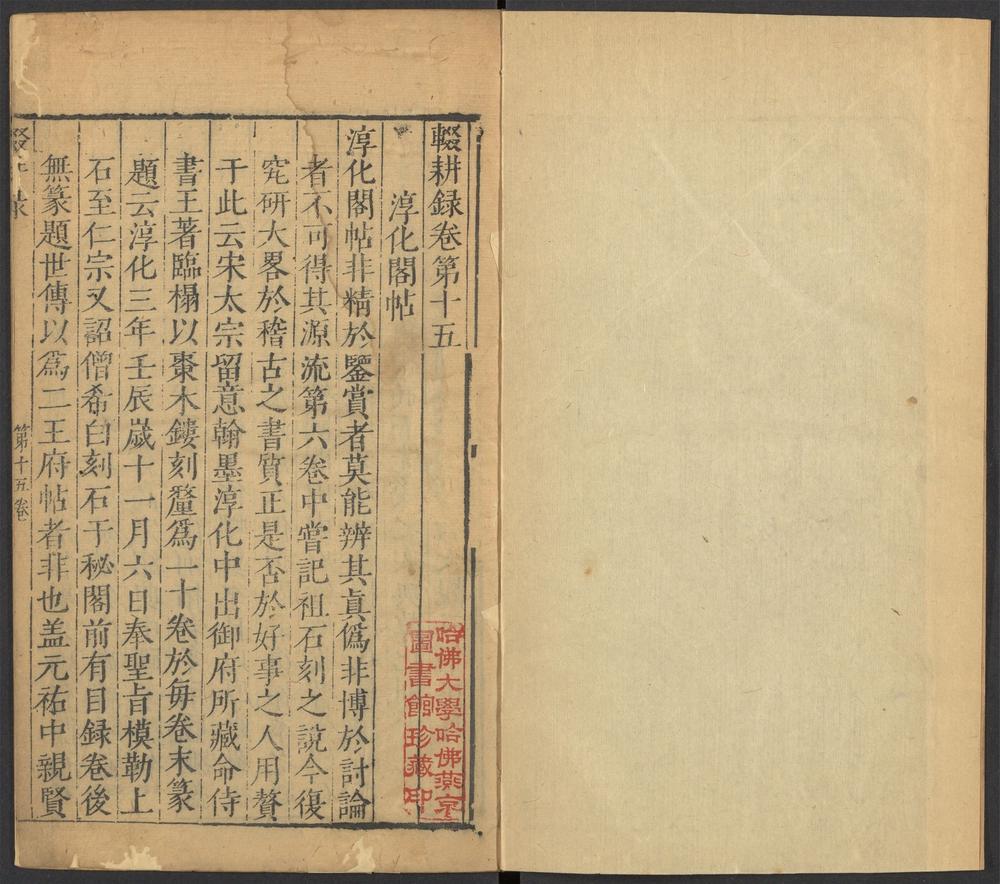 輟耕録卷第十五
淳化閣帖
淳化閣帖非精於鑒賞者莫能辨其真僞非博於討論
者不可得其源流第六卷中嘗記祖石刻之説今復
究研大畧於稽古之書質正是否於好事之人用贅
于此云宋太宗留意翰墨淳化中出御府所藏命侍
書王著臨榻以棗木鏤刻釐爲一十卷於每卷末篆
題云淳化三年壬辰歲十一月六日奉聖旨模勒上
石至仁宗又詔僧希白刻石于秘閣前有目録卷後
無篆題世傳以爲二王府帖者非也盖元祐中親賢
第十五卷
哈佛大學哈佛燕京
圖書館珍藏印